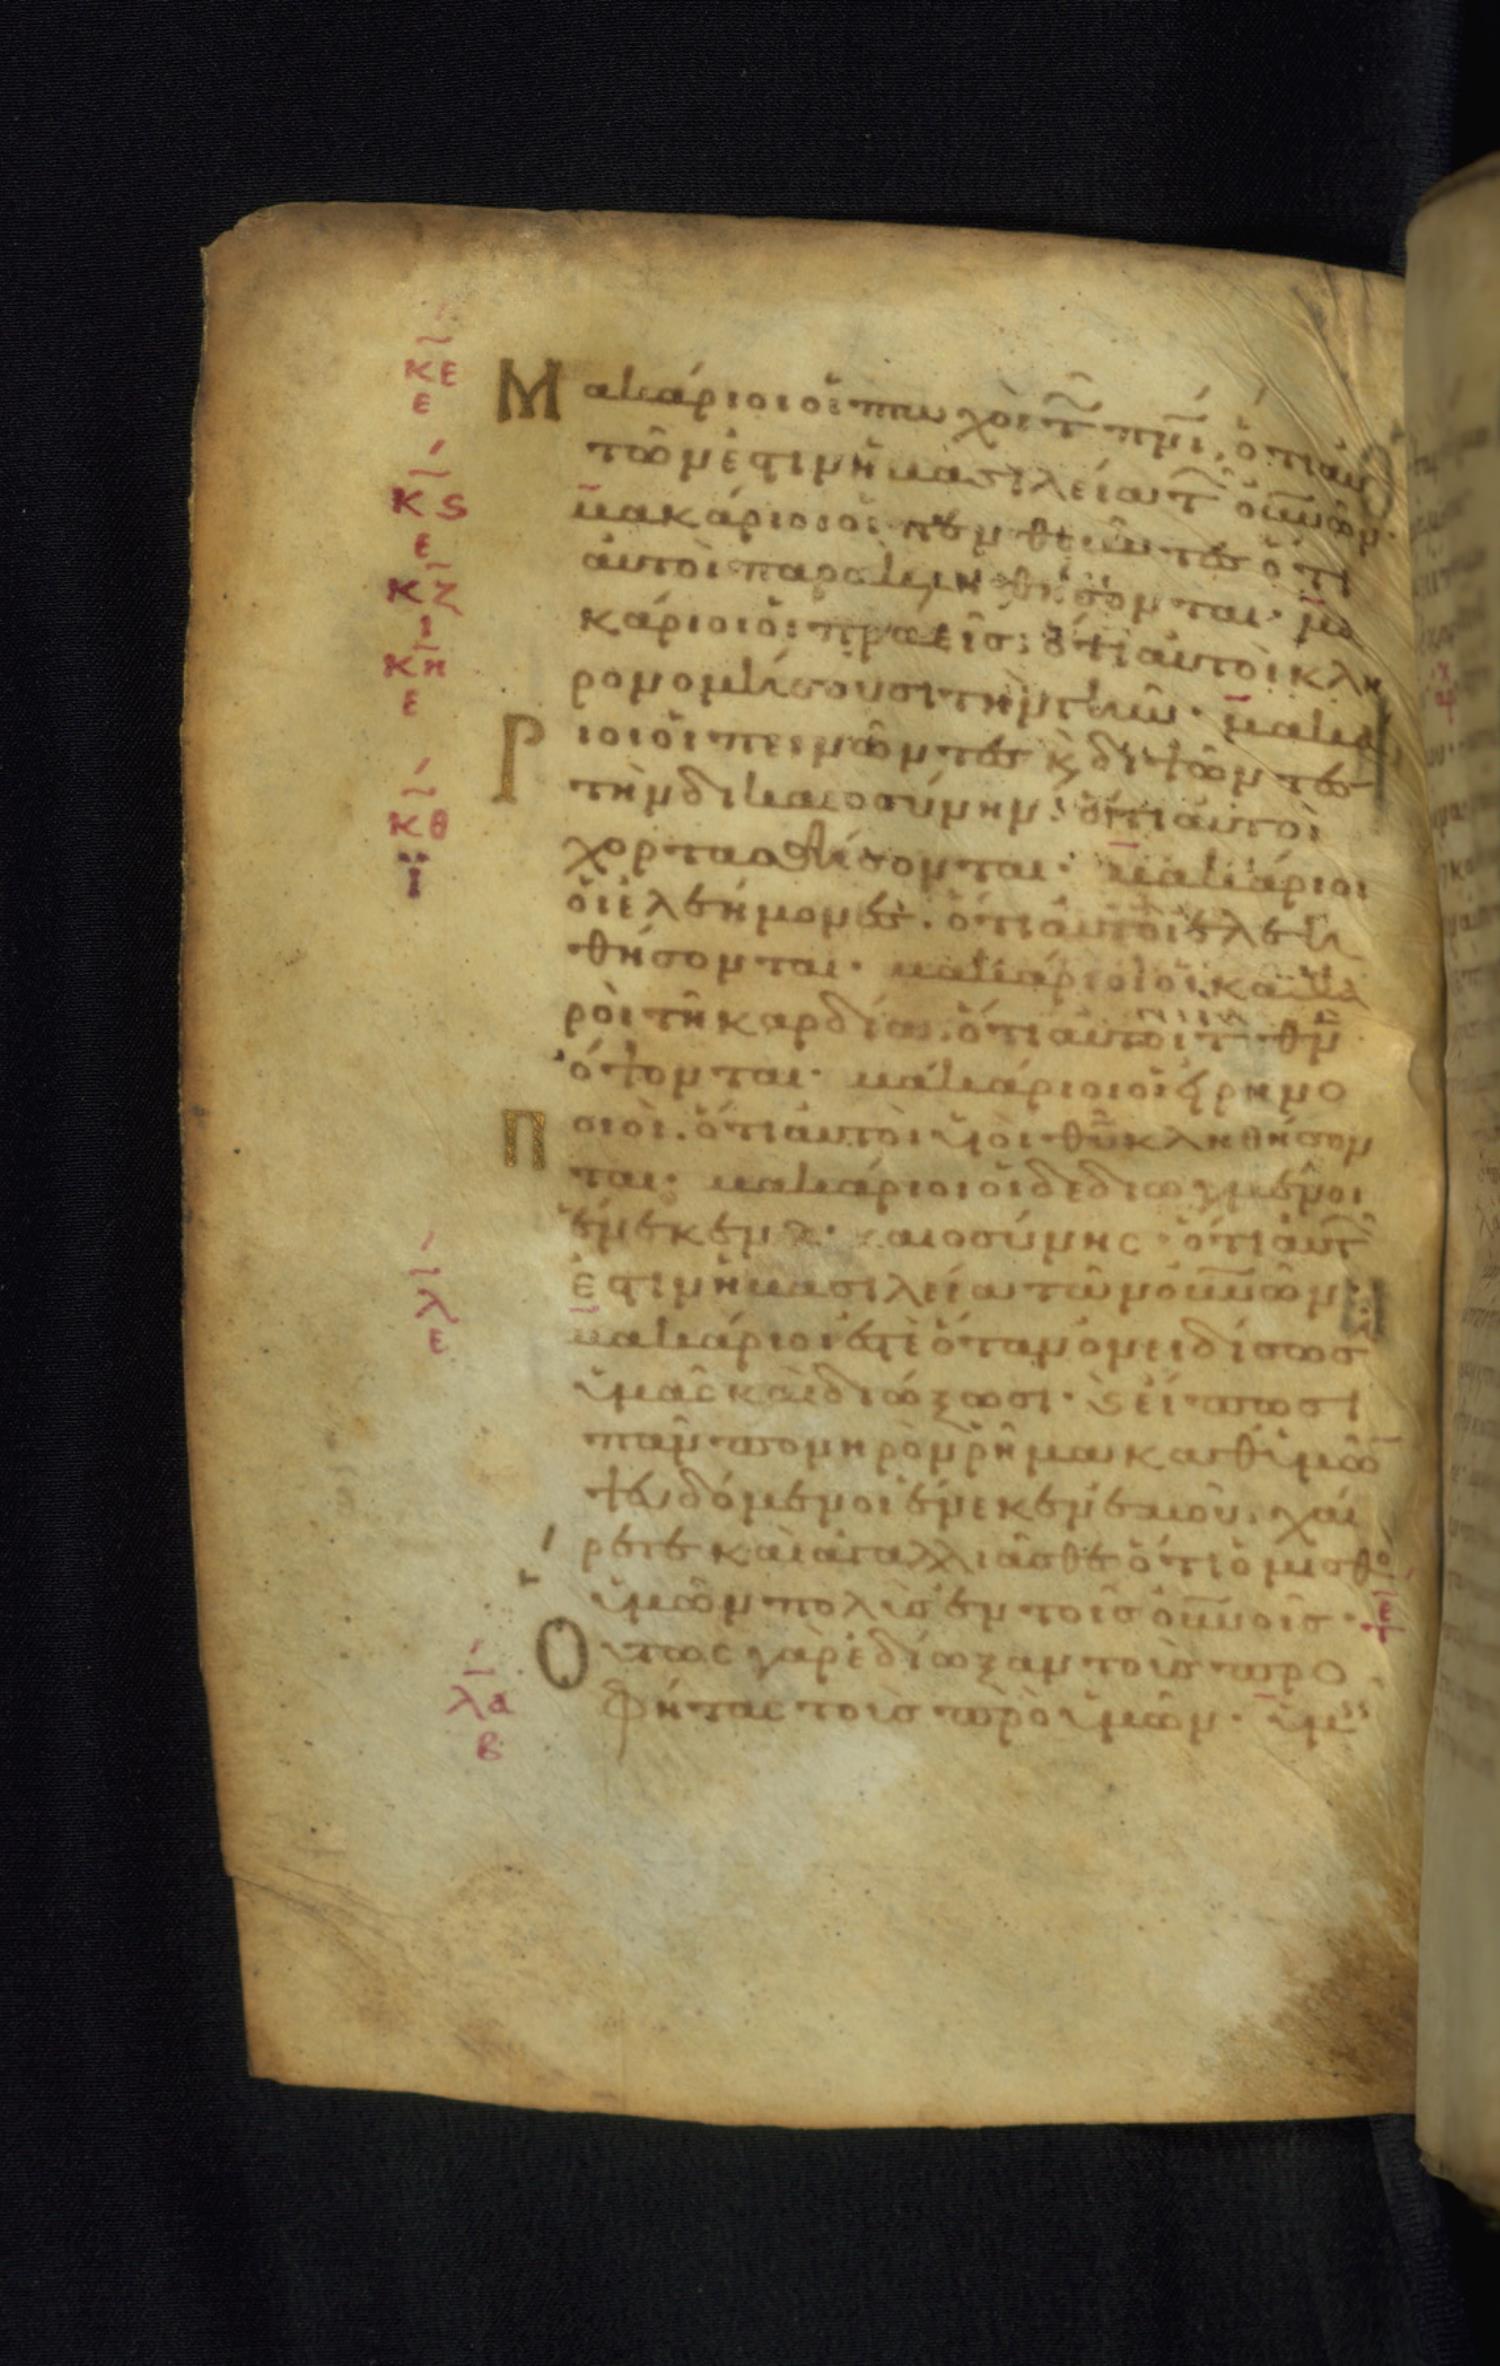 κε
ε
Μακάριοι οἱ πτωχοὶ τ̃ πν̅ι· ὅτι αὐ
τῶν ἐστιν ἡ βασιλεία τ̃ οὐν̅ῶν·
κς
ε
μακάριοι οἱ πενθοῦντες ὅτι
αὐτοὶ παρακληθήσονται· μα
κζ
ι
κάριοι οἱ πραεῖς· ὅτι αὐτοὶ κλη
κη
ε
ρονομήσουσι τὴν γῆν· μακά
Ριοι οἱ πεινῶντες κ̀ διψῶντες
τὴν δικαιοσύνην· ὅτι αὐτοὶ
κθ
ϊ
χορτασθήσονται· μακάριοι
οἱ ἐλεήμονες· ὅτι αὐτοὶ ἐλεη
θήσονται· μακάριοι οἱ καθα
ροὶ τῆ καρδία· ὅτι αὐτοὶ τ̀ θν̅
ὄψονται· μακάριοι οἱ εἰρηνο
Ποιοί· ὅτι αὐτοὶ υἱοὶ θυ̅ κληθήσον
ται· μακάριοι οἱ δεδιωγμένοι
ἕνεκεν δικαιοσύνης· ὅτι αὐτ̃
ἐστιν ἡ βασιλεία τῶν οὐν̅ῶν·
λ
ε
μακάριοί ἐστε ὅταν ὀνειδίσωσ
ὑμᾶς καὶ διώξωσι· κ̀ εἴπωσι
πᾶν πονηρὸν ῥῆμα καθ' ὑμῶ
ψευδόμενοι ἕνεκεν ἐμοῦ· χαί
ρετε καὶ ἀγαλλιᾶσθε ὅτι ὁ μισθὸ
ὑμῶν πολὺς ἐν τοῖς οὐν̅οῖς·
λα
β
Οὕτως γὰρ ἐδίωξαν τοὺς προ
φήτας τοὺς πρὸ ὑμῶν· ὑμεῖς